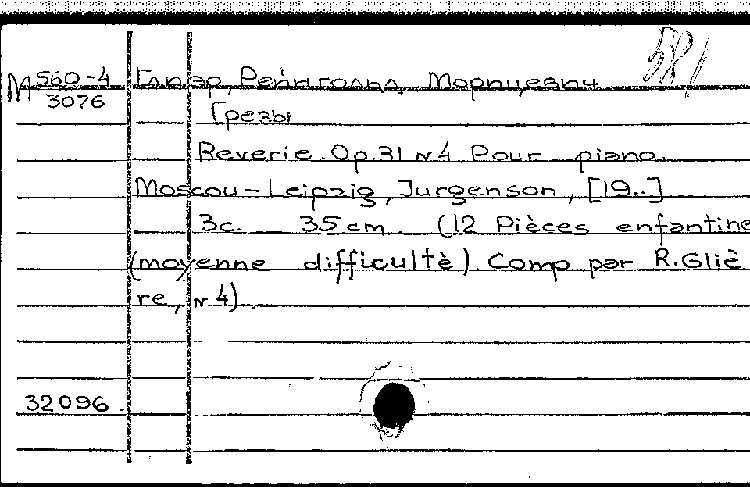 581
М 560-4 Глиэр, Рейнгольд Морицевич
3076
Грезы
Reverie. Op.31 N4 Pour piano.
Moscou-Leipzig, Jurgenson, [19..]
3c. 35cm. (12 Pièces enfantine
(moyenne difficultè) Comp par R.Gliè
re, N4).
32096.